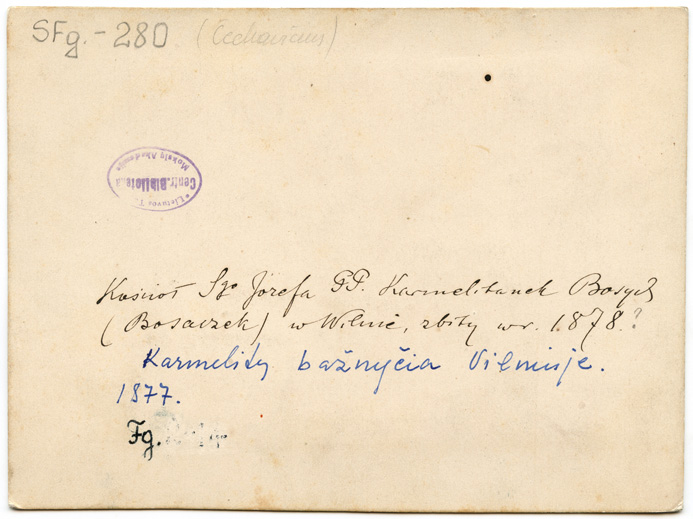 SFg. - 280 (Čechavičius)
Lietuvos T
Centr. Biblioteka
Mokslų Akademijo
Kościół Sgo Józefa PP. Karmelitanek Bosych
(Bosaczek) w Wilnie, zbity w r. 1878.?
Karmelitų bažnyčia Vilniuje.
1877.
Fg.